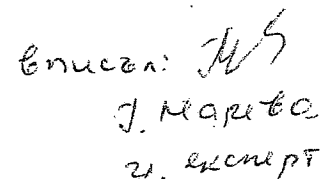 вписал:
Г. Марева
гл. експерт